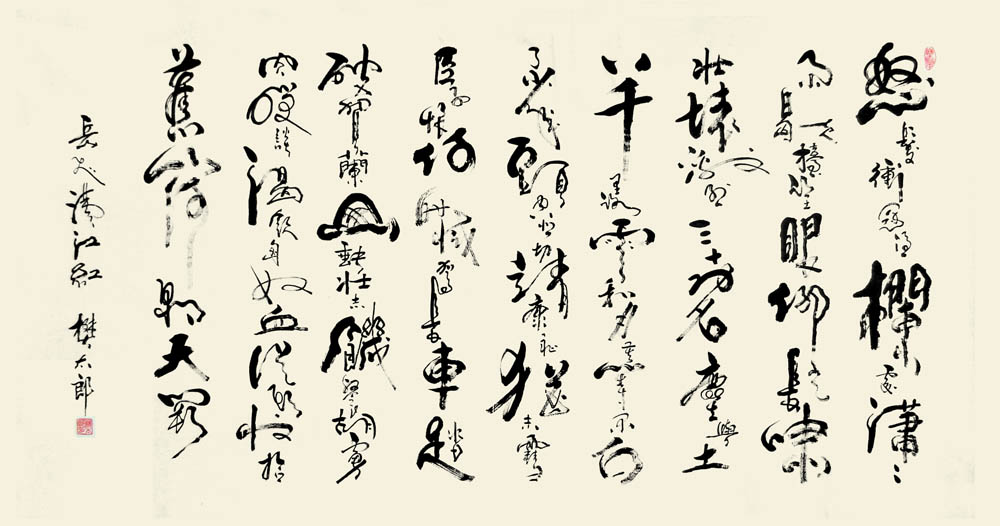 怒髮衝冠憑欄處瀟〻
雨歇擡望眼仰天長嘯
壯懷激烈三十功名塵與土
八千里路雲和月莫等閒白
了少年頭空悲切靖康恥猶未雪
臣子恨何時滅駕長車踏
破賀蘭山缺壯志饑餐胡虜
肉笑談渴飲匈奴血從頭收拾
舊山河朝天闕
岳飛滿江紅 樊太郎